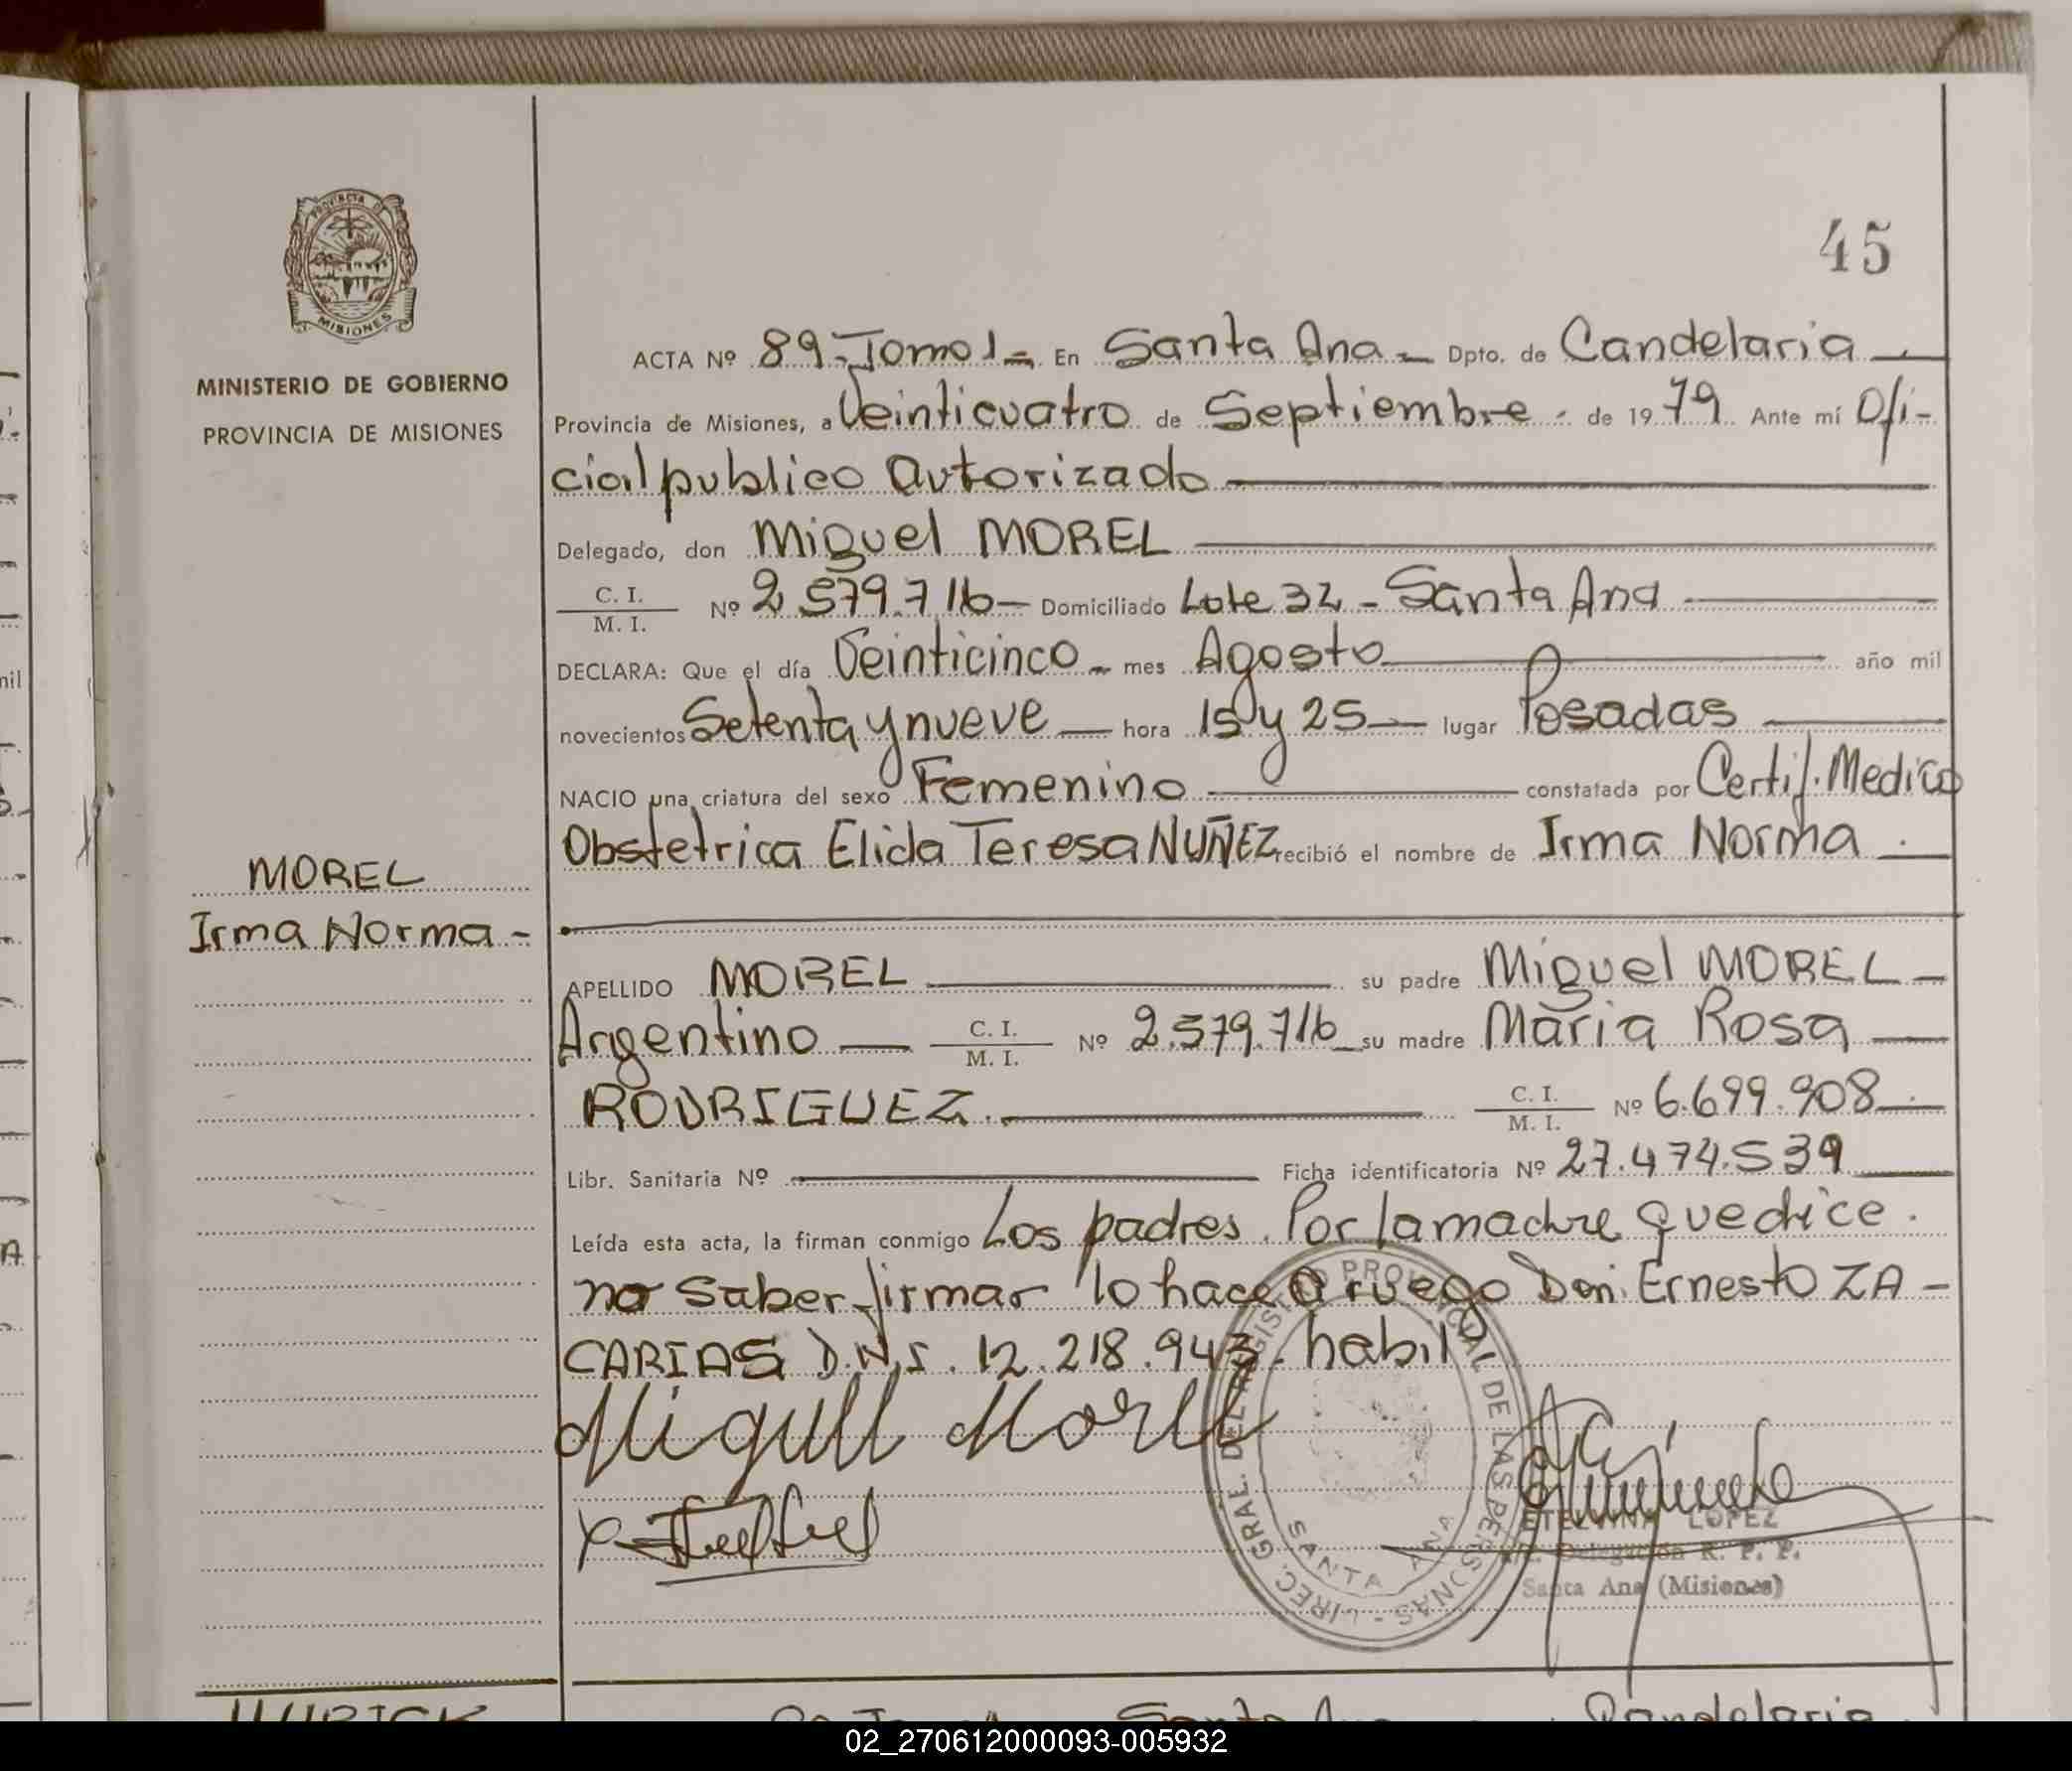 PROVINCIA DE
MISIONES
MINISTERIO DE GOBIERNO
PROVINCIA DE MISIONES
45
ACTA Nº 89-Tomo 1- En Santa Ana - Dpto. de Candelaria
Provincia de Misiones, a Veinticuatro de Septiembre - de 1979 Ante mí Ofi-
cial publico Autorizado
Delegado, don Miguel MOREL
C. I.
M. I. Nº 2.579.716 - Domiciliado Lote 32 - Santa Ana
DECLARA: Que el día Veinticinco - mes Agosto año mil
novecientos Setenta y nueve hora 15 y 25 lugar Posadas
NACIO una criatura del sexo Femenino constatada por Certif. Medico
Obstetrica Elida Teresa NUÑEZ recibió el nombre de Irma Norma
MOREL
Irma Norma -
APELLIDO MOREL su padre Miguel MOREL -
Argentino C. I.
M. I. Nº 2.579.716 su madre Maria Rosa
RODRIGUEZ. C. I.
M. I. Nº 6.699.908
Libr. Sanitaria Nº Ficha identificatoria Nº 27.474.539
Leída esta acta, la firman conmigo Los padres. Por la madre que dice
no saber firmar lo hace a ruego Don Ernesto ZA-
CARIAS D.N.I. 12.218.943. habil
Miguel Morel
DIREC. GRAL. DEL REGISTRO PROVINCIAL DE LAS PERSONAS -
SANTA ANA
ETELVINA LOPEZ
Delegación R. P. P.
Santa Ana (Misiones)
Santa Ana Candelaria
02_270612000093-005932